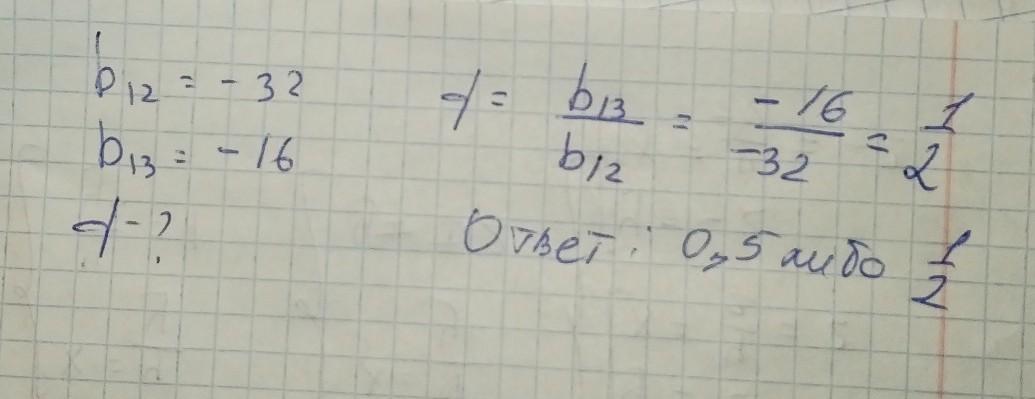 b₁₂ = - 32
b₁₃ = - 16
q - ?
q = b₁₃/b₁₂ = -16/-32 = 1/2
Ответ: 0,5 либо 1/2